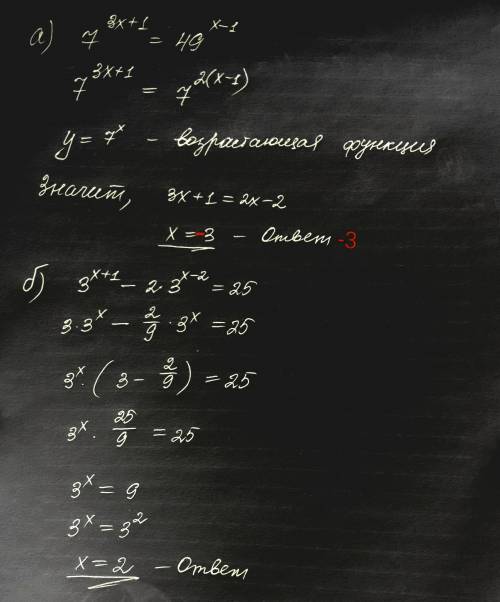 а) 7^(3x+1) = 49^(x-1)
7^(3x+1) = 7^(2(x-1))
y = 7^x - возрастающая функция
Значит, 3x+1 = 2x-2
x = -3 - Ответ -3
б) 3^(x+1) - 2·3^(x-2) = 25
3·3^x - 2/9 · 3^x = 25
3^x · (3 - 2/9) = 25
3^x · 25/9 = 25
3^x = 9
3^x = 3^2
x = 2 - Ответ